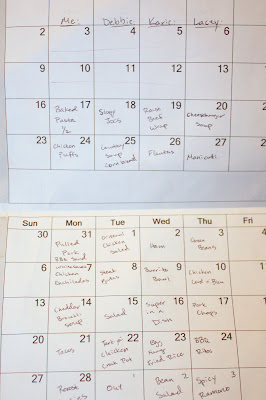 Me: Debbie: Karie: Lacey
2 3 4 5 6
9 10 11 12 13
16 17 18 19 20
Baked Pasta 1/2
Sloppy Joes
Roast Beef Wrap
Cheeseburger Soup
23 24 25 26 27
Chicken Puffs
Cowboy Soup Cornbread
Flautas
Manicotti
Sun Mon Tue Wed Thu Fri
30 31 1 2 3
Pulled Pork BBQ Sand
Oriental Chicken Salad
Ham
Green Beans
6 7 8 9 10
Chicken Enchiladas
Steak
Burrito Bowl
Chicken Cord n Bleu
13 14 15 16 17
Cheddar Broccoli Soup
Salad
Super in a Dish
Pork Chops
20 21 22 23 24
Tacos
Chicken Crock Pot
Egg Fried Rice
BBQ Ribs
27 28 1 2 3
Roast
Out
Bean Salad
Spicy